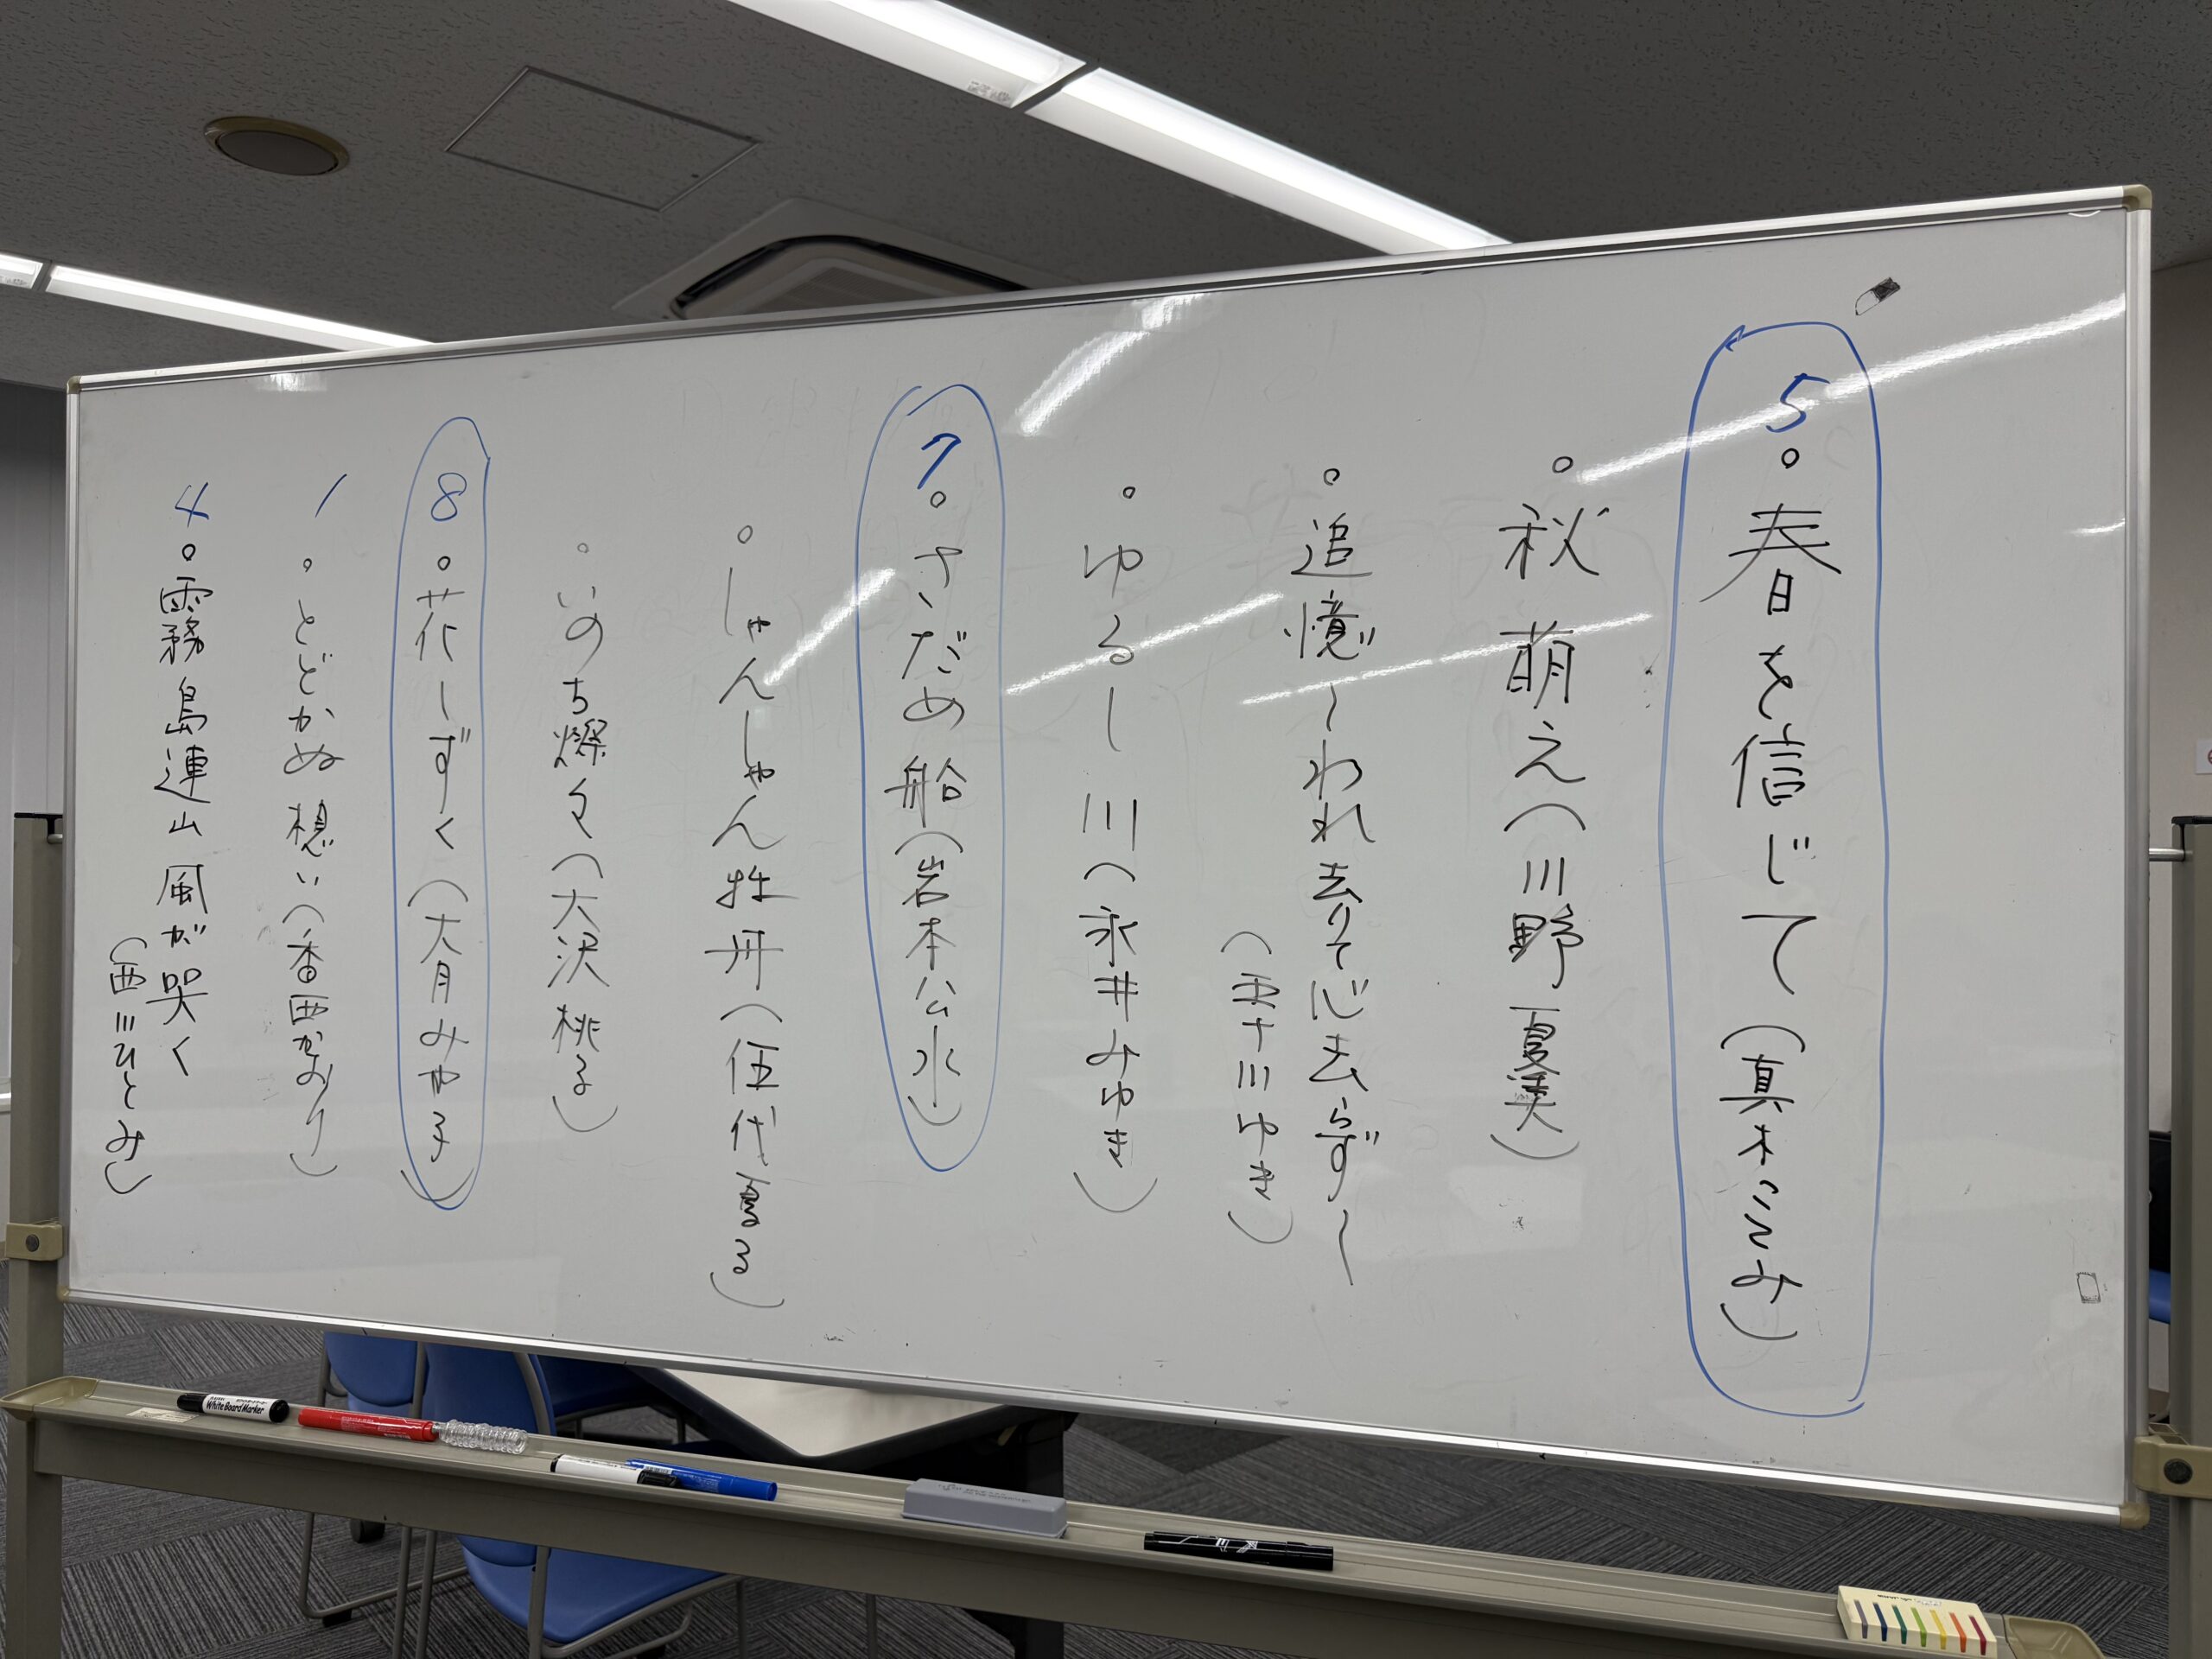 5。春を信じて(真木ことみ)
。秋萌え(川野夏美)
。追憶~われ去りて心去らず~
(五十川ゆき)
。ゆるし川(永井みゆき)
7。さだめ船(岩本公水)
。しゃんしゃん牡丹(伍代夏子)
。いのち燦々(大沢桃子)
8。花しずく(大月みや子)
1。とどかぬ想い(香西かおり)
4。霧島連山風が哭く
(西川ひとみ)
White Board Marker